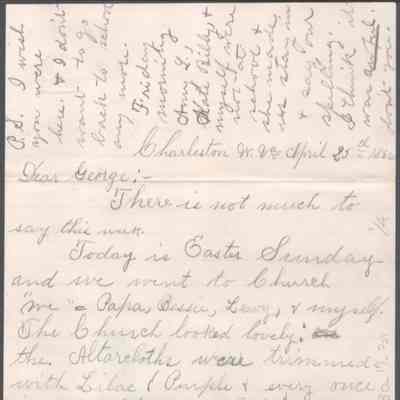 P.S. I wish
you were
here. & I don't
want to go
back to school
any more.
Friday
morning
Amy L,
Billy, &
myself were
not at
school &
she made
us stay in
& say our
spelling.
I think it
was
you.
Charleston W. Va. April 25th
Dear George:-
There is not much to
say this week.
Today is Easter Sunday
and we went to Church
"we" = Papa, Bessie, Lewy, & myself.
The Church looked lovely:
the Altarcloths were trimmed
with Lilac (Purple & every once